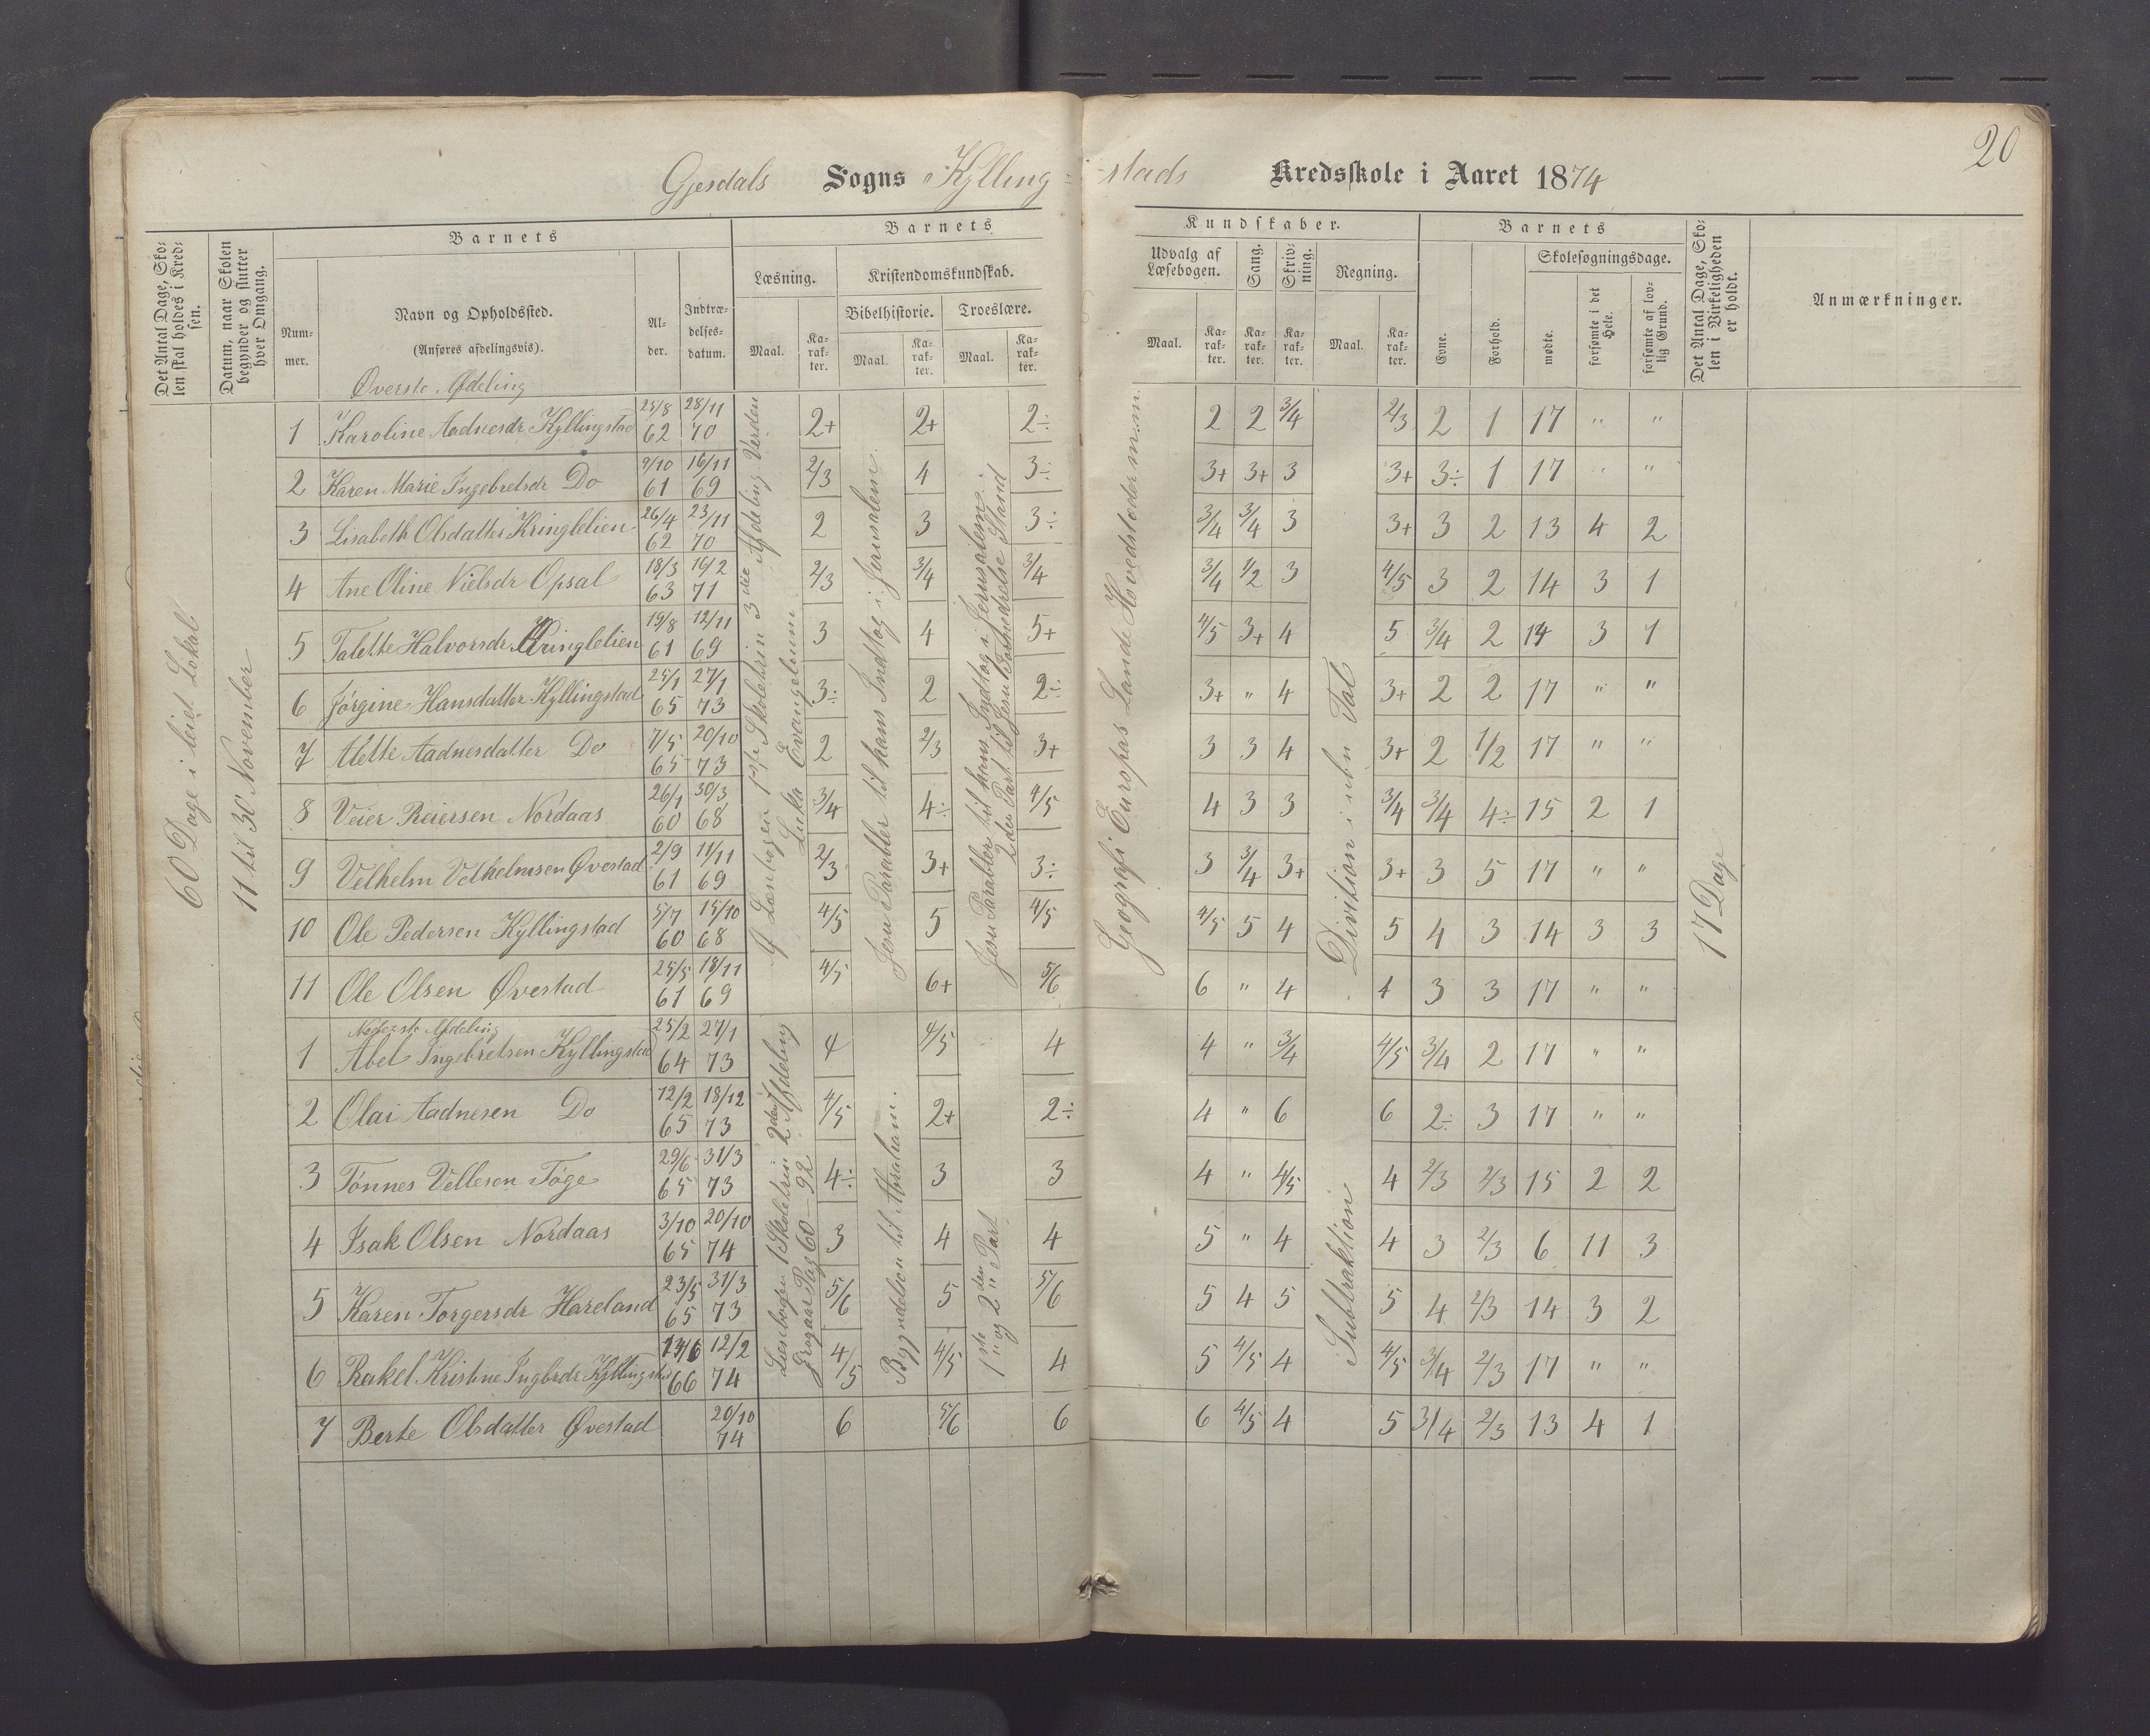 20
Gjesdals Sogns Kylling-stads Kredsskole i Aaret 1874
Det Antal Dage, Skolen skal holdes i Kredsen.
Datum, naar Skolen begynder og slutter hver Omgang.
Barnets
Nummer.
Navn og Opholdssted.
(Anføres afdelingsvis).
Alder.
Indtrædelsesdatum.
Barnets Kundskaber.
Læsning.
Maal.
Karakter.
Kristendomskundskab.
Bibelhistorie.
Maal.
Karakter.
Troeslære.
Maal.
Karakter.
Udvalg af Læsebogen.
Maal.
Karakter.
Sang.
Karakter.
Skrivning.
Karakter.
Regning.
Maal.
Karakter.
Barnets
Evne.
Forhold.
Skolesøgningsdage.
mødte.
forsømte i det Hele.
forsømte af lovlig Grund.
Det Antal Dage, Skolen i Virkeligheden er holdt.
Anmærkninger.
60 Dage i leiet Lokal
11 til 30 November
Øverste Afdeling
1 Karoline Aadnesdr Kyllingstad 25/8 62 28/11 70 2+ 2+ 2÷ 2 2 3/4 2/3 2 1 17 " "
2 Karen Marie Ingebretsdr Do 9/10 61 16/11 69 2/3 4 3÷ 3+ 3+ 3 3+ 3÷ 1 17 " "
3 Lisabeth Olsdatter Kringlelien 26/4 62 23/11 70 2 3 3÷ 3/4 3/4 3 3+ 3 2 13 4 2
4 Ane Oline Nielsdr Opsal 18/3 63 16/2 71 2/3 3/4 3/4 3/4 1/2 3 4/5 3 2 14 3 1
5 Talette Halvorsdr Kringlelien 19/8 61 12/11 69 3 4 5+ 4/5 3+ 4 5 3/4 2 14 3 1
6 Jørgine Hansdatter Kyllingstad 25/1 65 27/1 73 3÷ 2 2÷ 3+ " 4 3+ 2 2 17 " "
7 Alette Aadnesdatter Do 7/5 65 20/10 73 2 2/3 3+ 3 3 4 3+ 2 1/2 17 " "
8 Veier Reiersen Nordaas 26/1 60 30/3 68 3/4 4÷ 4/5 4 3 3 3/4 3/4 4÷ 15 2 1
9 Velhelm Velhelmsen Øvestad 2/9 61 11/11 69 2/3 3+ 3÷ 3 3/4 3+ 3+ 3 5 17 " "
10 Ole Pedersen Kyllingstad 5/7 60 15/10 68 4/5 5 4/5 4/5 5 4 5 4 3 14 3 3
11 Ole Olsen Øvestad 25/5 61 18/11 69 4/5 6+ 5/6 6 " 4 4 3 3 17 " "
Skoletrin 3die Afdeling Verden
Luka Evangelium
Jesu Parabler til hans Indtog i Jerusalem.
Jesu Parabler til hans Indtog i Jerusalem.
2den Part til Jesu Fornedrelse Stand
Geografi Europas Lande Hovedstæder m.m.
Division i ubn Tal
17 Dage
Nederste Afdeling
1 Abel Ingebretsen Kyllingstad 25/2 64 27/1 73 4 4/5 4 4 " 3/4 4/5 3/4 2 17 " "
2 Olai Aadnesen Do 12/2 65 18/12 73 4/5 2+ 2÷ 4 " 6 6 2÷ 3 17 " "
3 Tønnes Vellesen Tøge 29/6 65 31/3 73 4÷ 3 3 4 " 4/5 4 2/3 2/3 15 2 2
4 Isak Olsen Nordaas 3/10 65 20/10 74 3 4 4 5 " 4 4 3 2/3 6 11 3
5 Karen Torgersdr Hareland 23/5 65 31/3 73 5/6 5 5/6 5 4 5 5 4 2/3 14 3 2
6 Rakel Kristine Ingbrdr Kyllingstad 66 12/2 74 4/5 4/5 4 5 4/5 4 4/5 3/4 2/3 17 " "
7 Berte Olsdatter Øvestad 20/10 74 6 5/6 6 6 4/5 4 5 3/4 2/3 13 4 1
Læsebogen 1 Skoletrin 2den Afdeling
Pag 60-92
Begyndelsen til Absalom.
1ste og 2den Part
Subtraktion